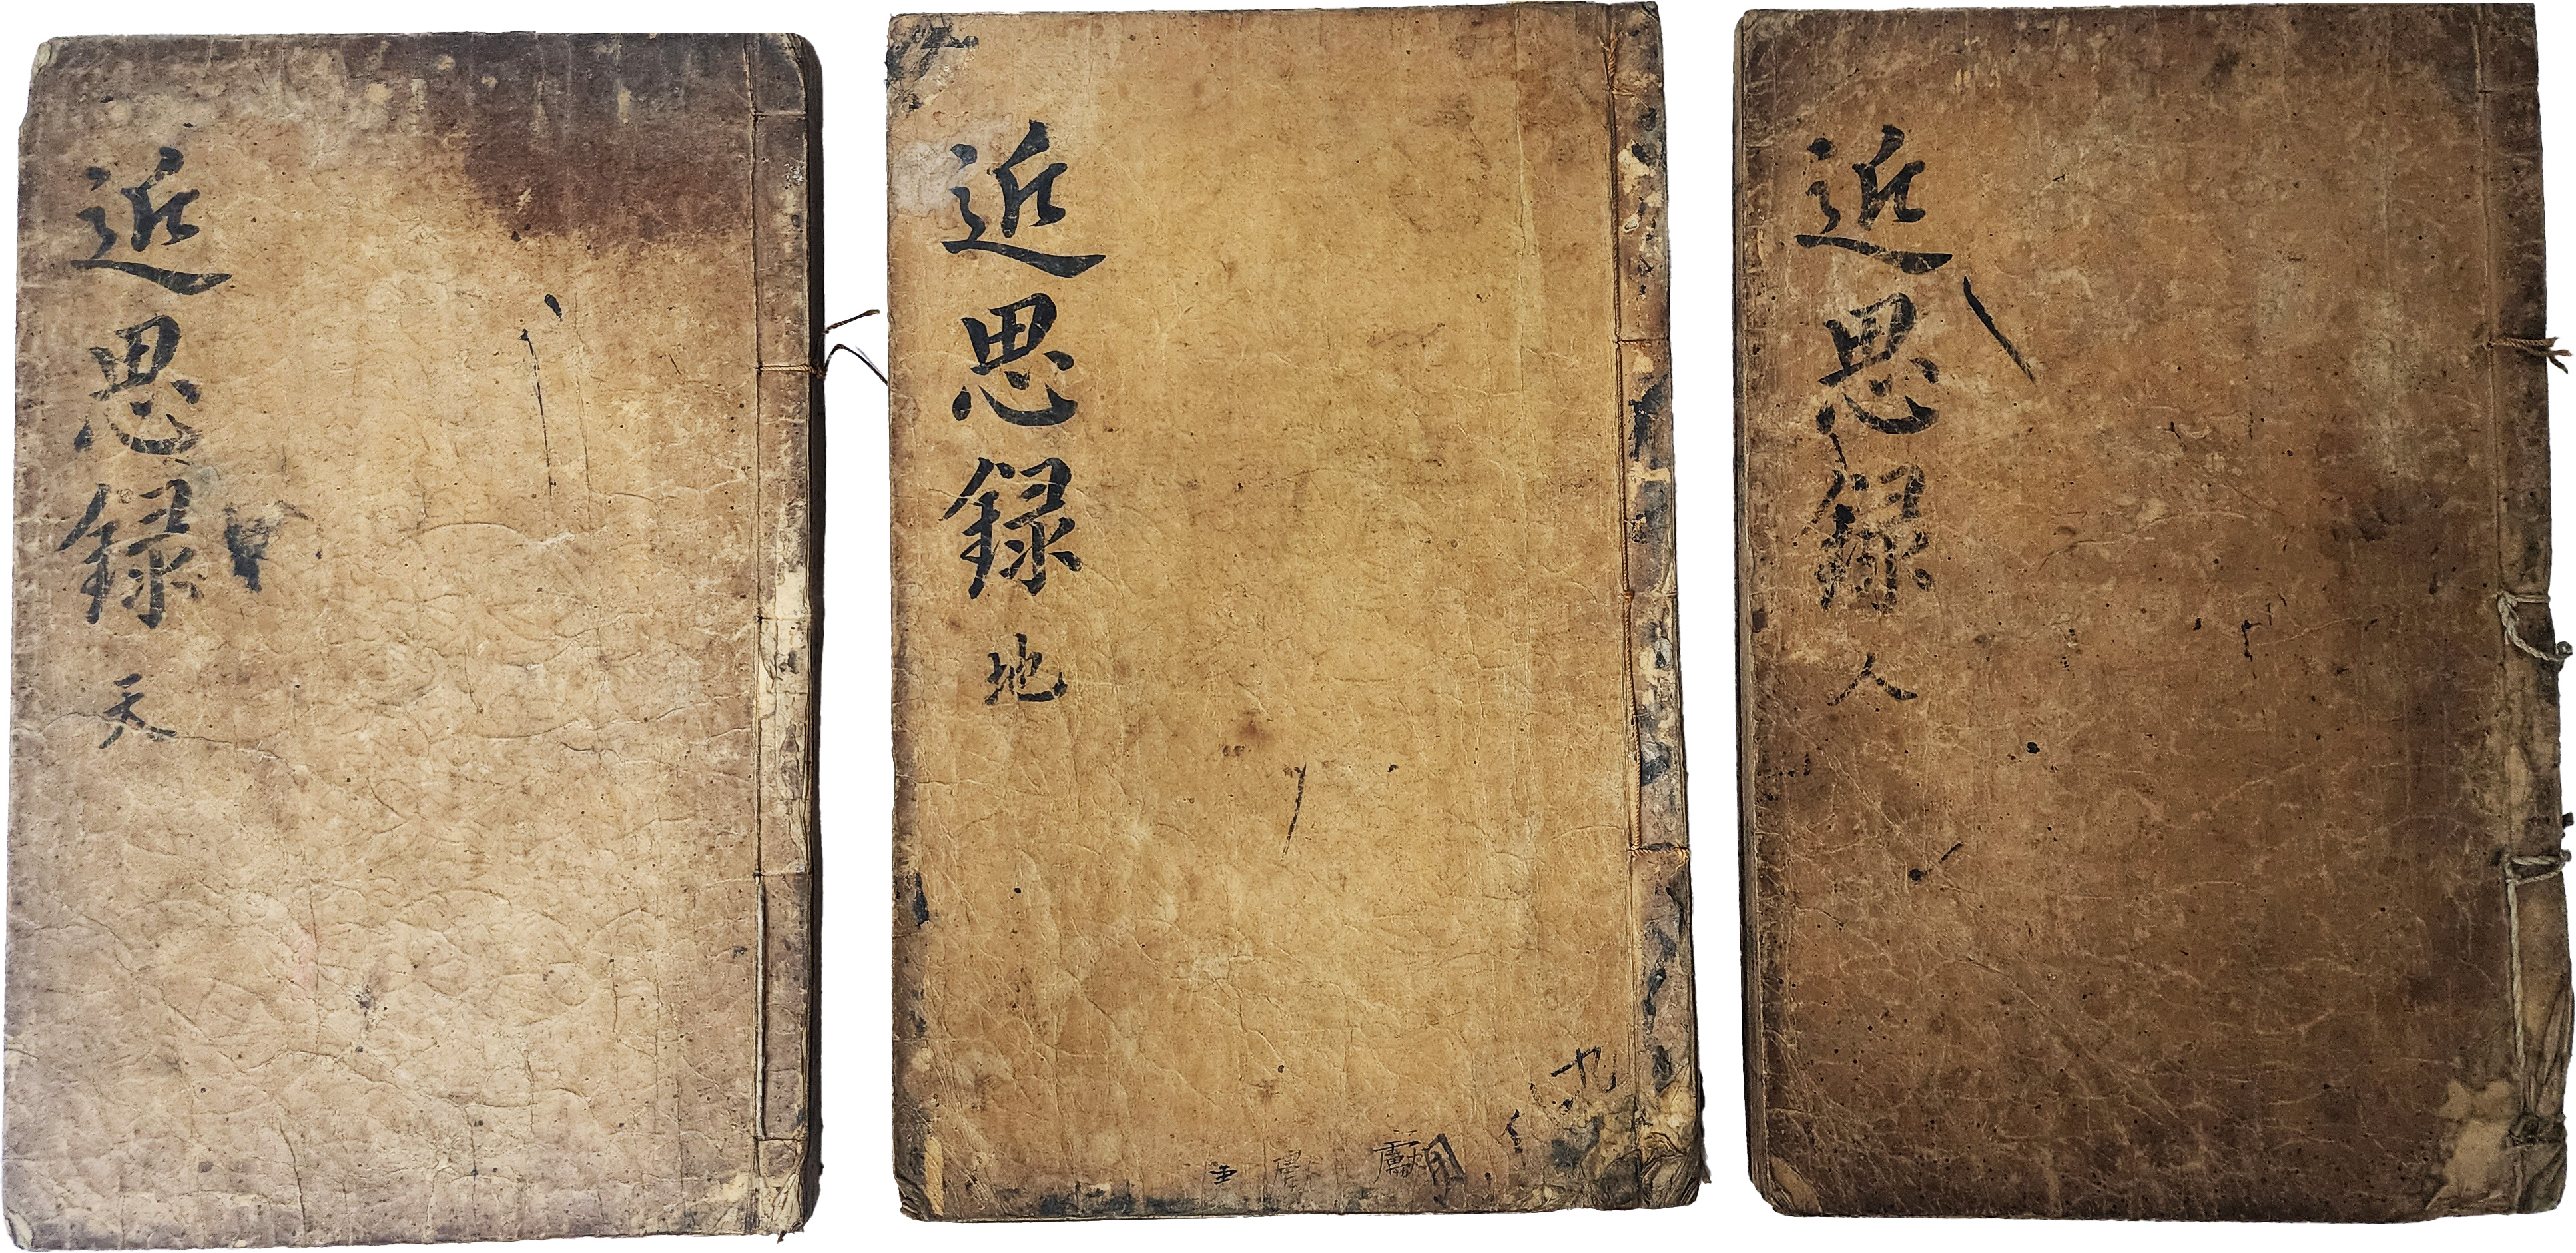 近思録天
近思録地
近思録人
九